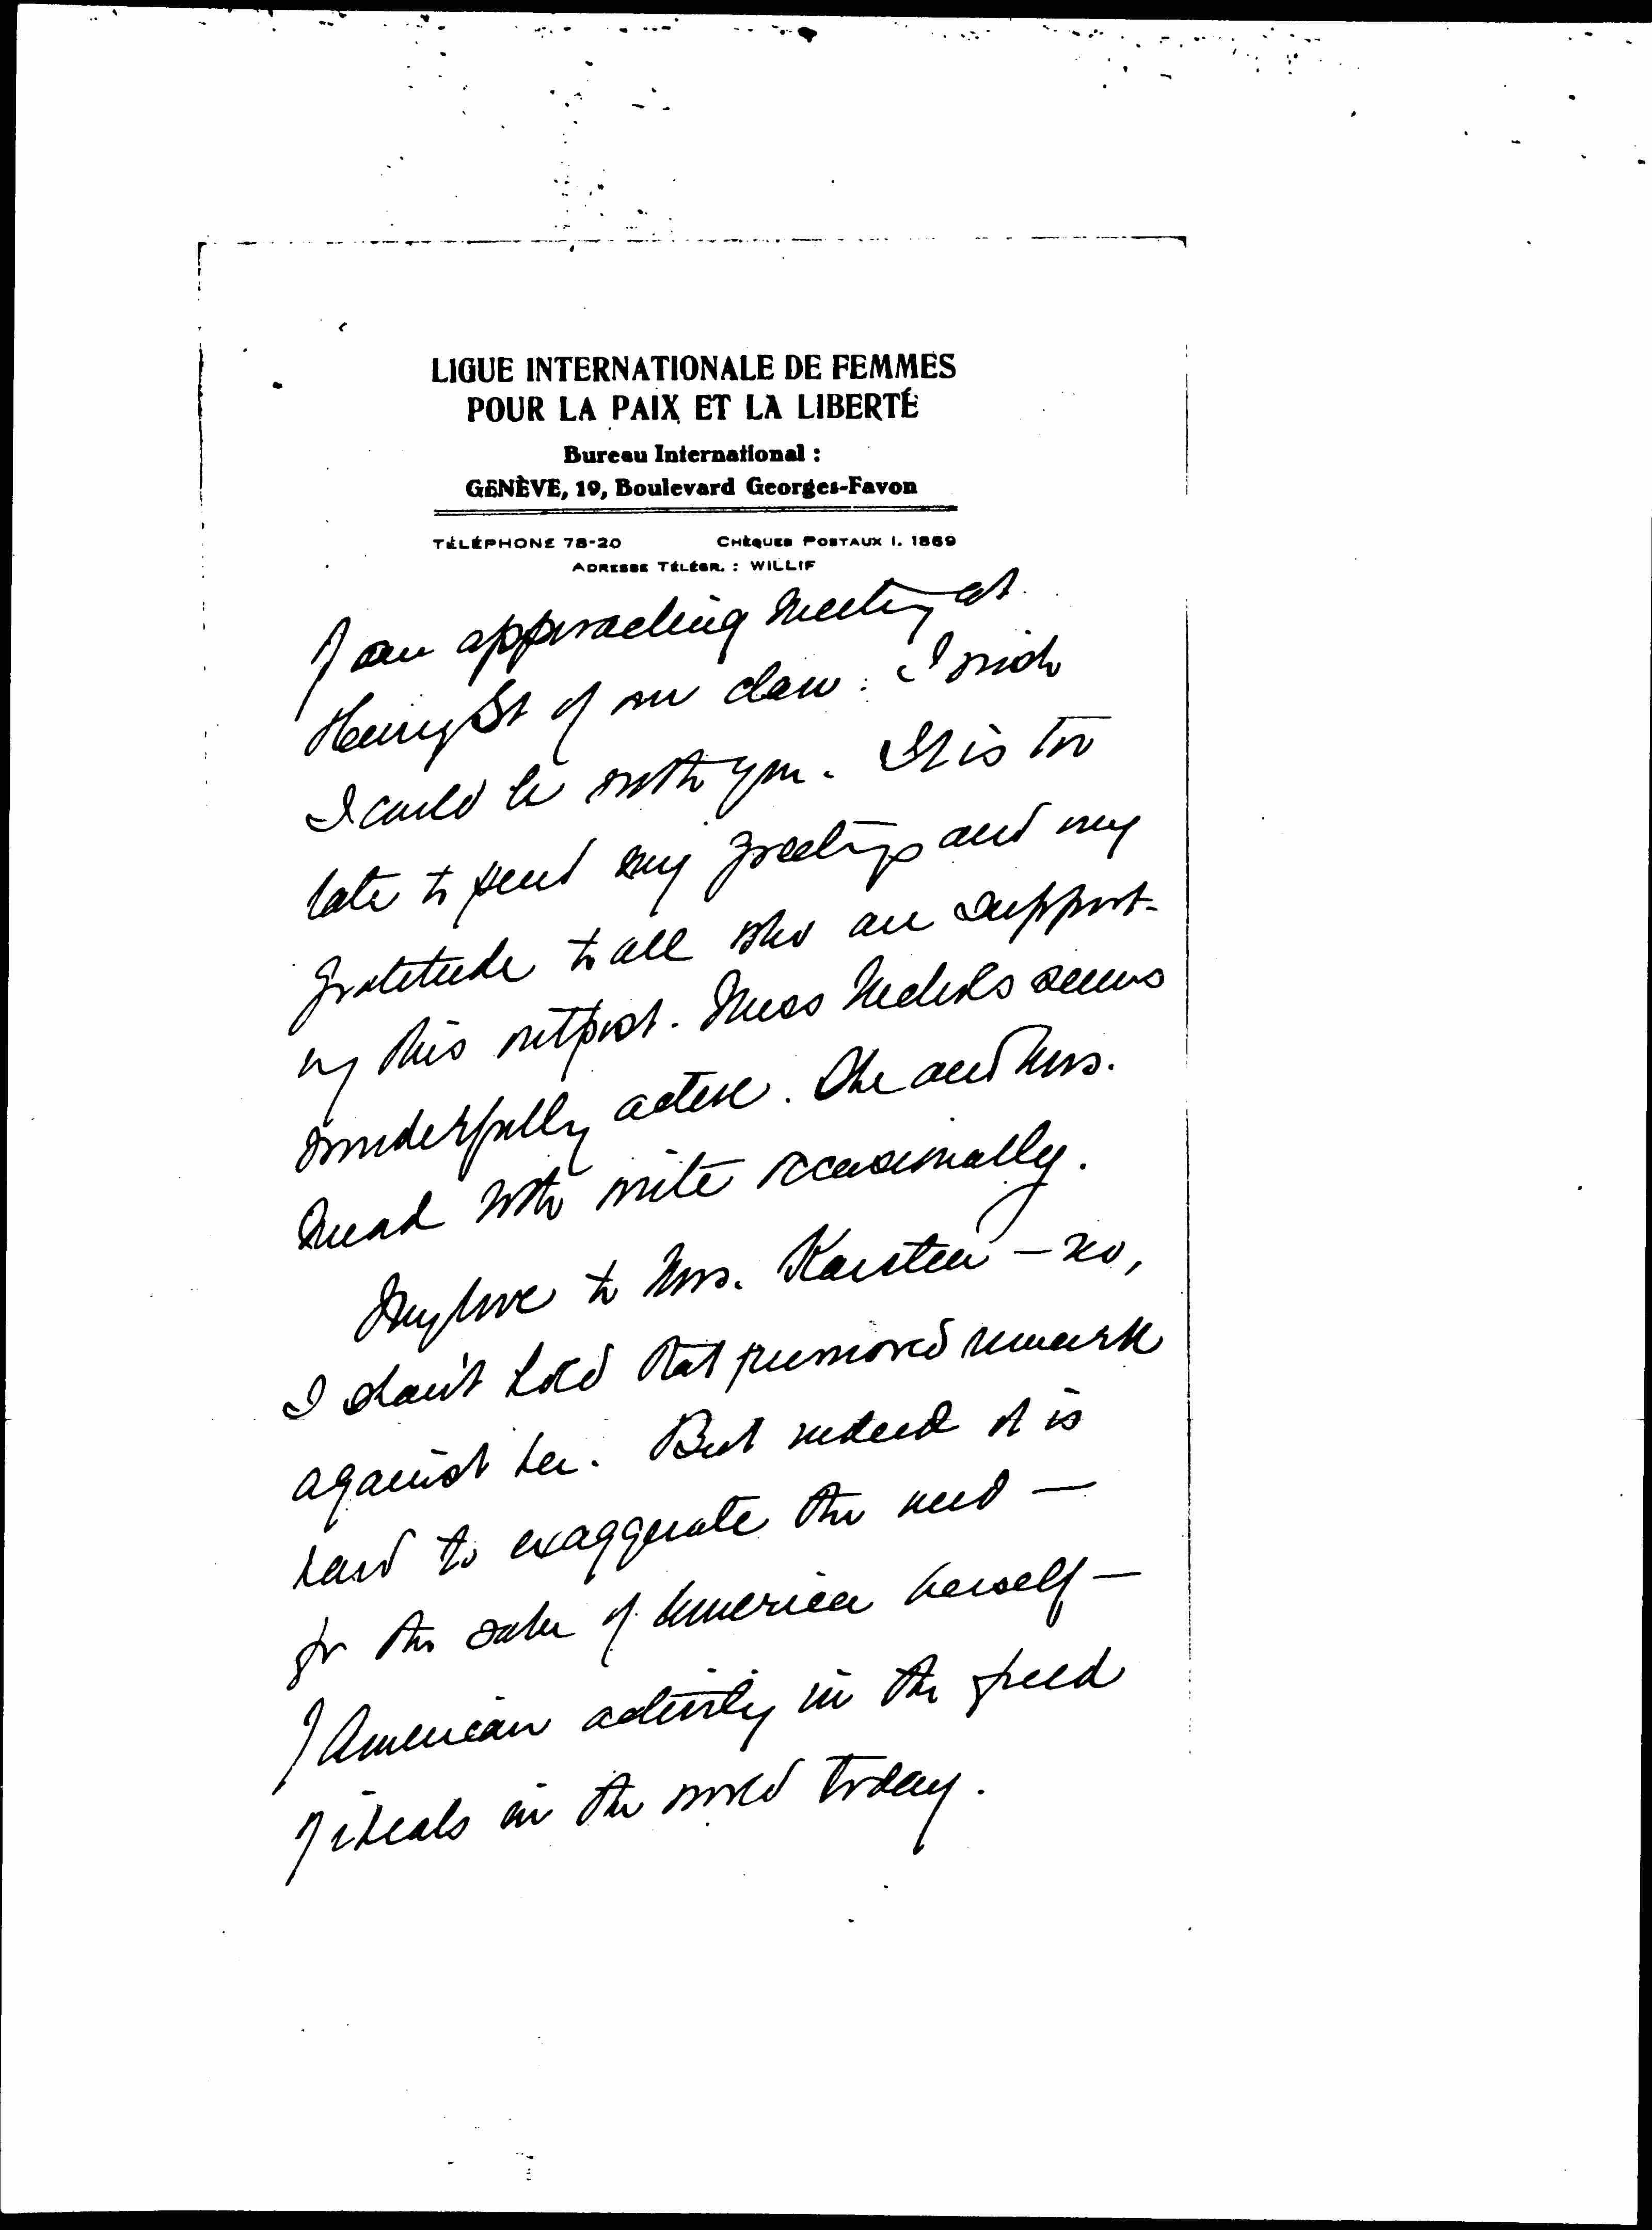 LIGUE INTERNATIONALE DE FEMMES
POUR LA PAIX ET LA LIBERTÉ
Bureau International :
GENÈVE, 19, Boulevard Georges-Favon
TÉLÉPHONE 78-20 CHÈQUES POSTAUX I. 1869
ADRESSE TÉLÉGR. : WILLIF
of an approaching meeting at
Henry St of our clan. I wish
I could be with you. It is too
late to send my greetings and my
gratitude to all who are support-
ing this outpost. Miss Nichols seems
wonderfully active. She and Mrs.
Mead both write occasionally.
My love to Mrs. Karsten — no,
I shan't hold that rumored remark
against her. But indeed it is
hard to exaggerate the need —
for the sake of America herself —
of American activity in the field
of ideals in the world today.